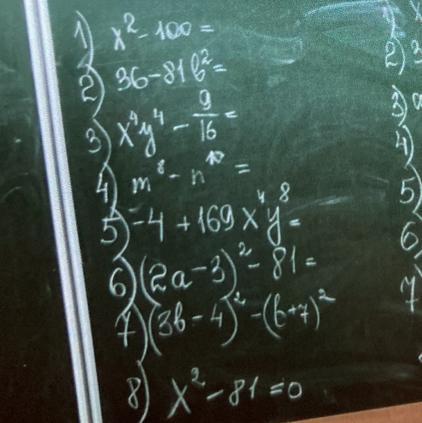 1) x² - 100 =
2) 36 - 81b² =
3) x⁴y⁴ - 9/16 =
4) m⁸ - n¹⁰ =
5) -4 + 169x⁴y⁸ =
6) (2a - 3)² - 81 =
7) (3b - 4)² - (b + 7)²
8) x² - 81 = 0
1)
2) 3
3) a
4)
5)
6
7